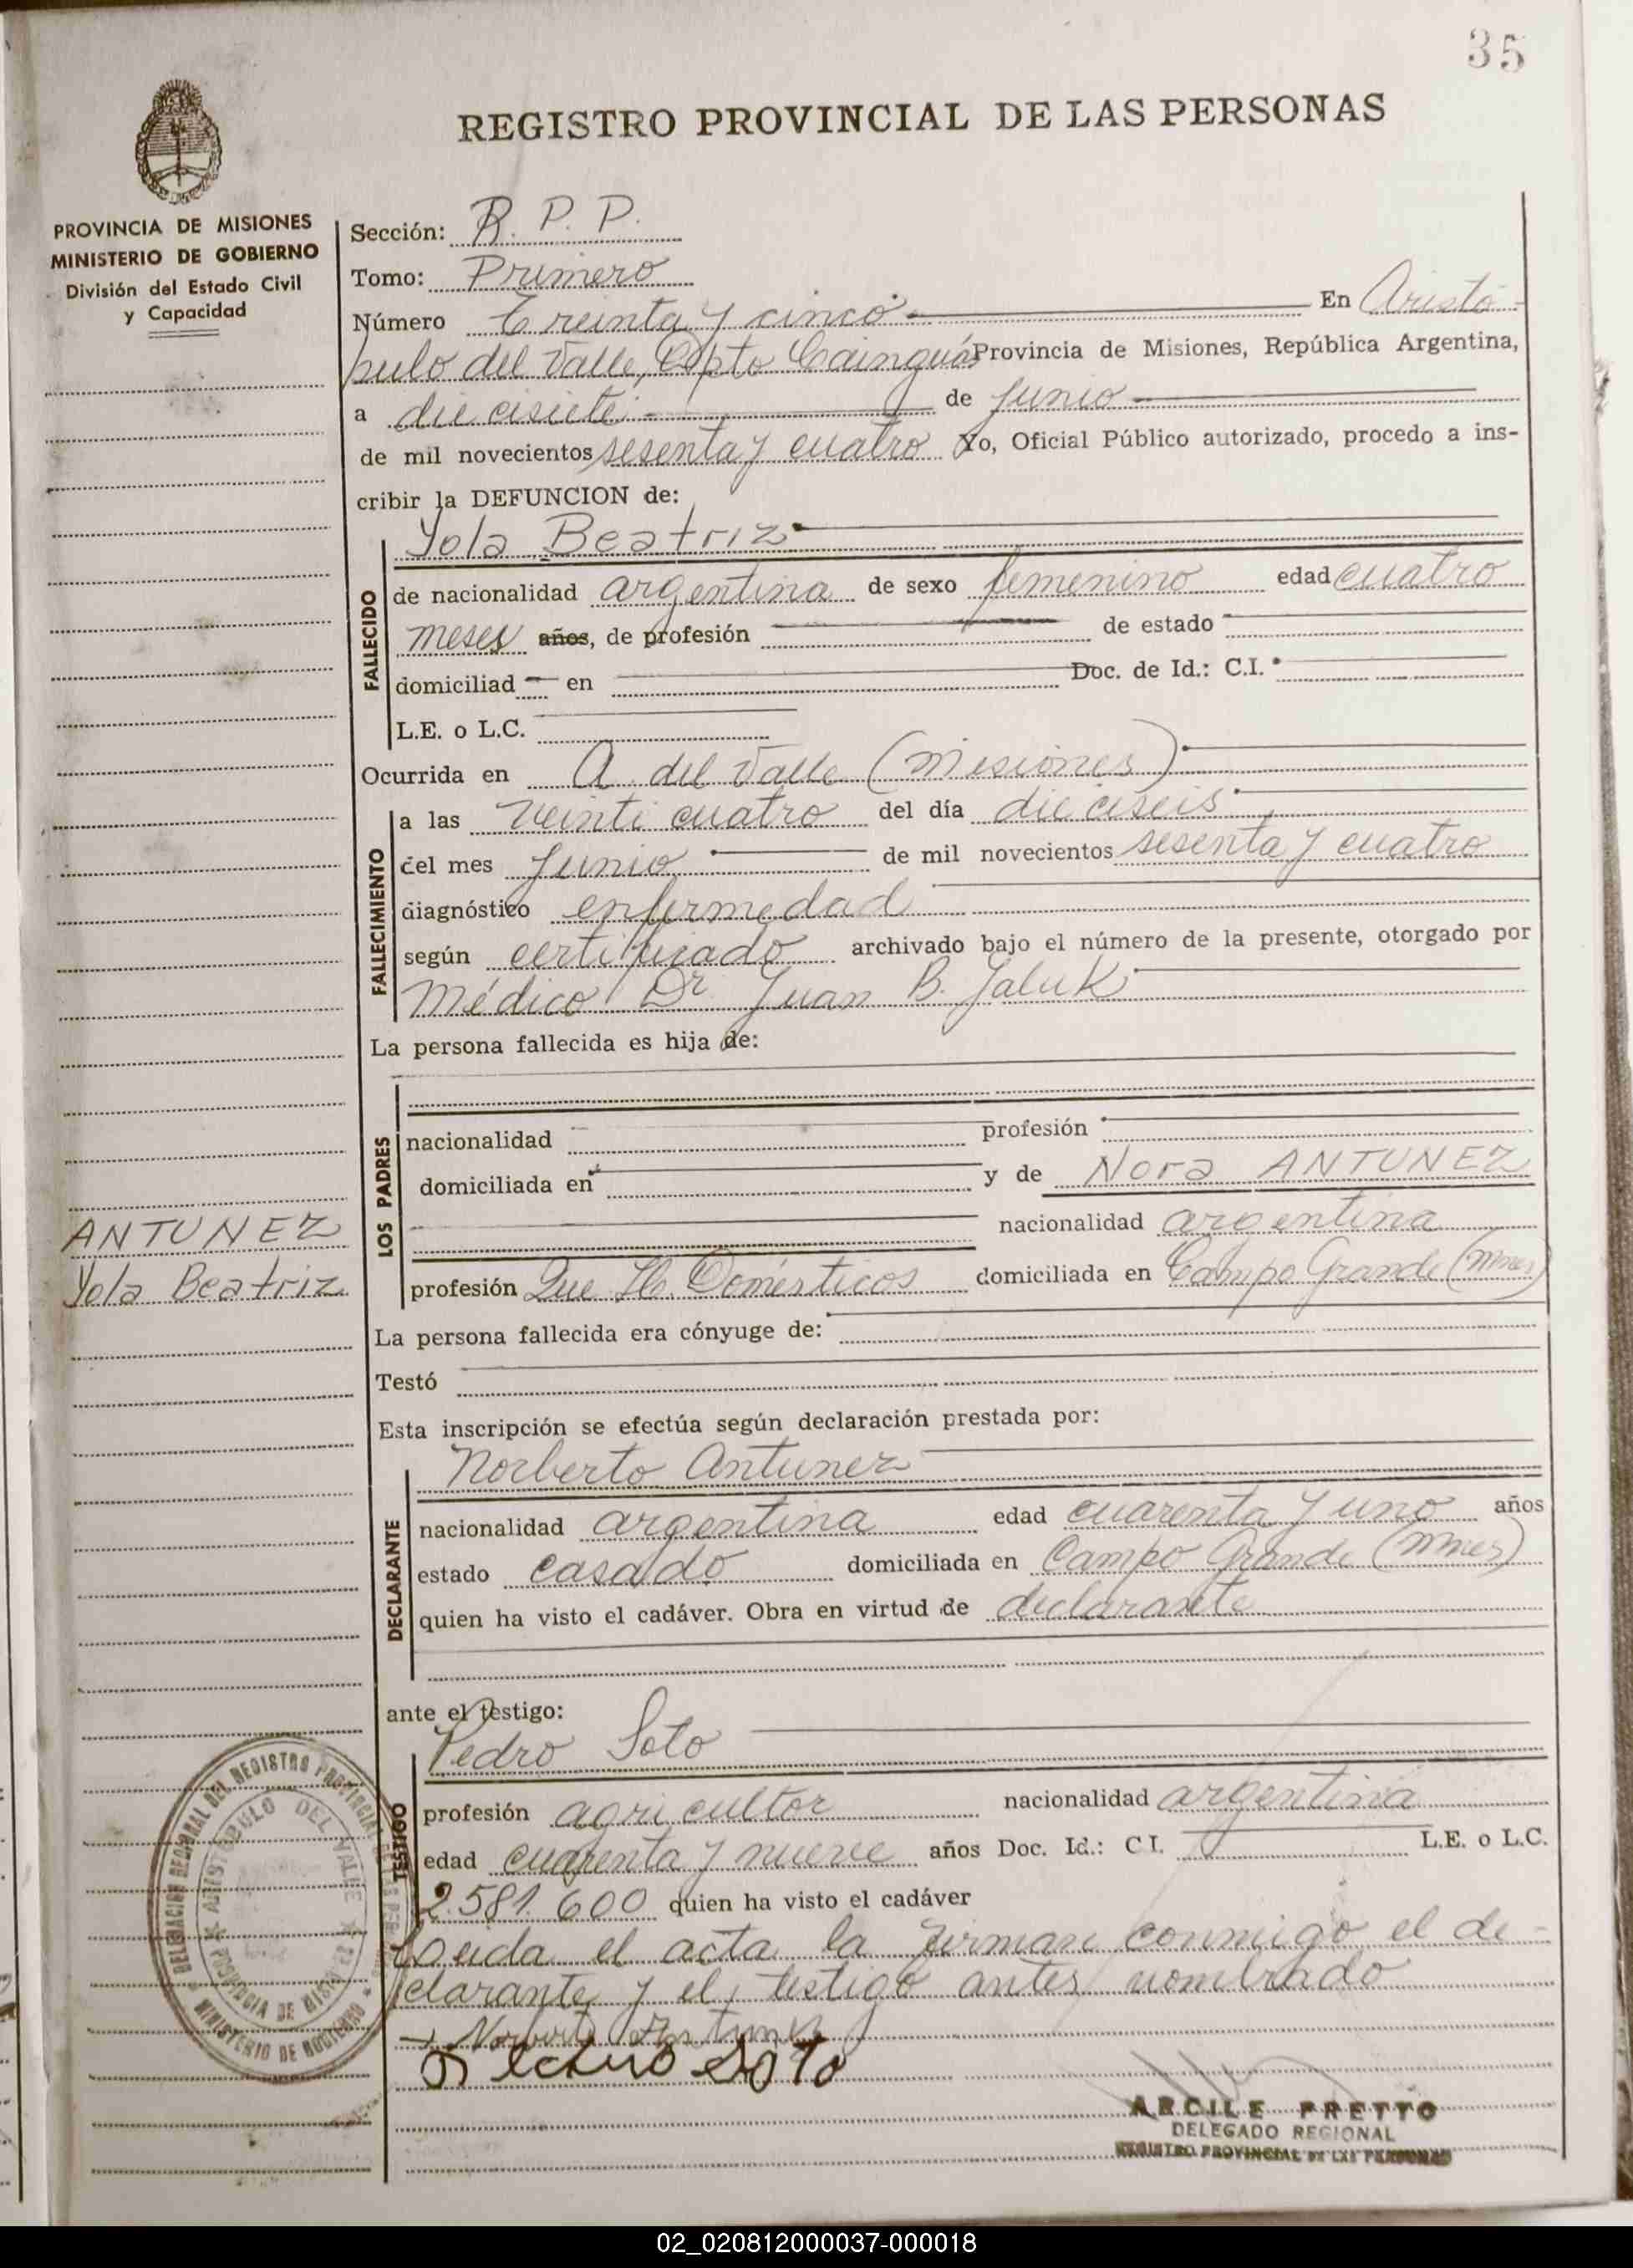 35
REGISTRO PROVINCIAL DE LAS PERSONAS
PROVINCIA DE MISIONES
MINISTERIO DE GOBIERNO
División del Estado Civil
y Capacidad
Sección: R. P. P.
Tomo: Primero
Número Treinta y cinco En Aristó-
bulo del Valle, Dpto Cainguás Provincia de Misiones, República Argentina,
a diecisiete de Junio
de mil novecientos sesenta y cuatro Yo, Oficial Público autorizado, procedo a ins-
cribir la DEFUNCION de:
Yola Beatriz
FALLECIDO
de nacionalidad argentina de sexo femenino edad cuatro
meses años, de profesión de estado
domiciliad en Doc. de Id.: C.I.
L.E. o L.C.
Ocurrida en A. del Valle (Misiones)
FALLECIMIENTO
a las veinti cuatro del día dieciseis
del mes Junio de mil novecientos sesenta y cuatro
diagnóstico enfermedad
según certificado archivado bajo el número de la presente, otorgado por
Médico Dr. Juan B. Jaluk
La persona fallecida es hija de:
LOS PADRES
nacionalidad profesión
domiciliada en y de Nora ANTUNEZ
nacionalidad argentina
profesión Que Hs. Domésticos domiciliada en Campo Grande (Mnes)
ANTUNEZ
Yola Beatriz
La persona fallecida era cónyuge de:
Testó
Esta inscripción se efectúa según declaración prestada por:
Norberto Antunez
DECLARANTE
nacionalidad argentina edad cuarenta y uno años
estado casado domiciliada en Campo Grande (Mnes)
quien ha visto el cadáver. Obra en virtud de declarante
ante el testigo:
Pedro Soto
TESTIGO
profesión agricultor nacionalidad argentina
edad cuarenta y nueve años Doc. Id.: C I. L.E. o L.C.
2.581.600 quien ha visto el cadáver
Leida el acta la firman conmigo el de-
clarante y el testigo antes nombrado
Norberto Antunez
Soto
DELEGACION REGIONAL DEL REGISTRO PROVINCIAL DE LAS PERSONAS
MINISTERIO DE GOBIERNO
ARISTOBULO DEL VALLE
PROVINCIA DE MISIONES
ARCILE PRETTO
DELEGADO REGIONAL
REGISTRO PROVINCIAL DE LAS PERSONAS
02_020812000037-000018